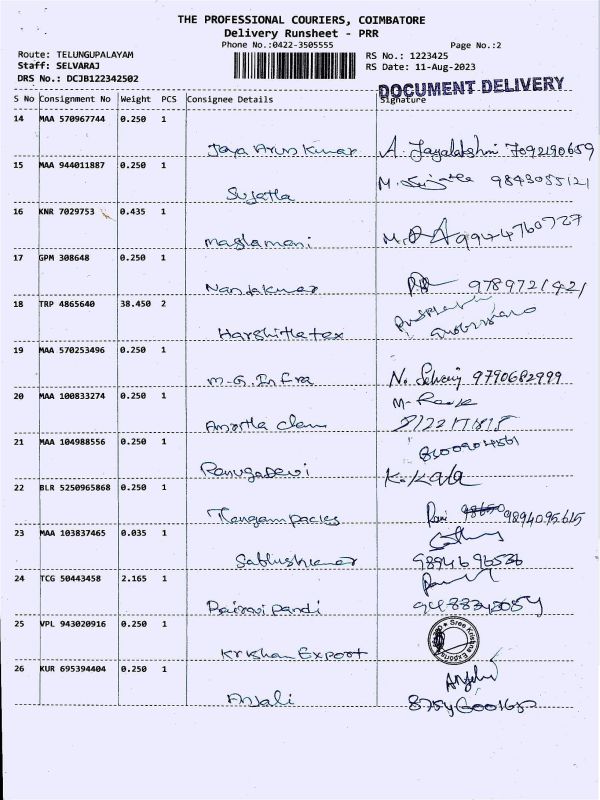 THE PROFESSIONAL COURIERS, COIMBATORE
Delivery Runsheet - PRR
Phone No.:0422-3505555
Page No.:2
Route: TELUNGUPALAYAM
RS No.: 1223425
Staff: SELVARAJ
RS Date: 11-Aug-2023
DRS No.: DCJB122342502
DOCUMENT DELIVERY
S No Consignment No Weight PCS Consignee Details Signature
14 MAA 570967744 0.250 1
Jaya Arun Kumar A. Jayalakshmi 7092190659
15 MAA 944011887 0.250 1
Sujatha M. 9843055121
16 KNR 7029753 0.435 1
maglamani 9944760727
17 GPM 308648 0.250 1
Nandakumar 9789721421
18 TRP 4865640 38.450 2
Harshitha tex
19 MAA 570253496 0.250 1
M.G. Infra N. 9790682999
20 MAA 100833274 0.250 1
M-
21 MAA 104988556 0.250 1
Renugadevi K. Kala
22 BLR 5250965868 0.250 1
Ravi 9894095615
23 MAA 103837465 0.035 1
9894696536
24 TCG 50443458 2.165 1
Pairavi Pandi
25 VPL 943020916 0.250 1
Sree Krishna Exports
Krishan Export
26 KUR 695394404 0.250 1
Anjali
Anjali